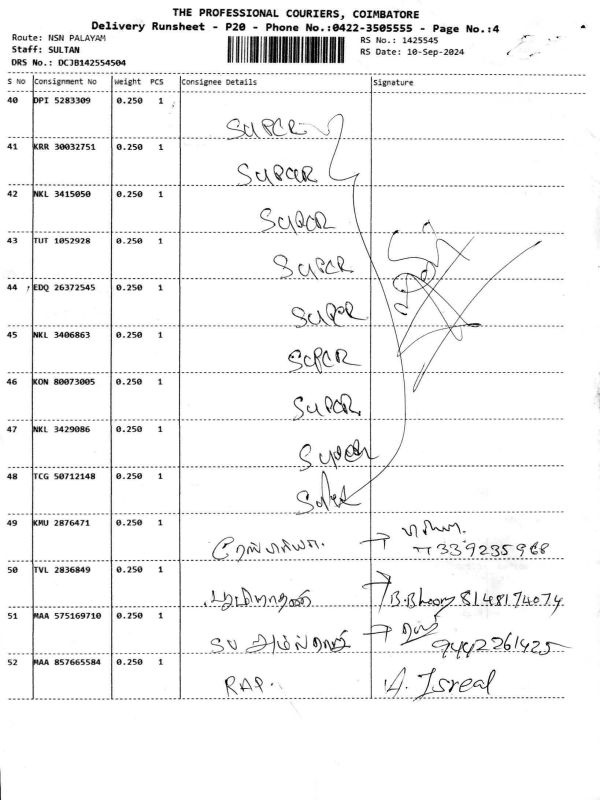 THE PROFESSIONAL COURIERS, COIMBATORE
Delivery Runsheet - P20 - Phone No.:0422-3505555 - Page No.:4
Route: NSN PALAYAM
Staff: SULTAN
DRS No.: DCJB142554504
RS No.: 1425545
RS Date: 10-Sep-2024
S No Consignment No Weight PCS Consignee Details Signature
40 DPI 5283309 0.250 1
SUPER
41 KRR 30032751 0.250 1
SUPER
42 NKL 3415050 0.250 1
SUPER
43 TUT 1052928 0.250 1
SUPER
44 EDQ 26372545 0.250 1
SUPER
45 NKL 3406863 0.250 1
SUPER
46 KON 80073005 0.250 1
SUPER
47 NKL 3429086 0.250 1
SUPER
48 TCG 50712148 0.250 1
SUPER
49 KMU 2876471 0.250 1
→
9339235968
50 TVL 2836849 0.250 1
→ B.Bhoomy 8148174074
51 MAA 575169710 0.250 1
→
9442261425
52 MAA 857665584 0.250 1
RAP. A. Isreal